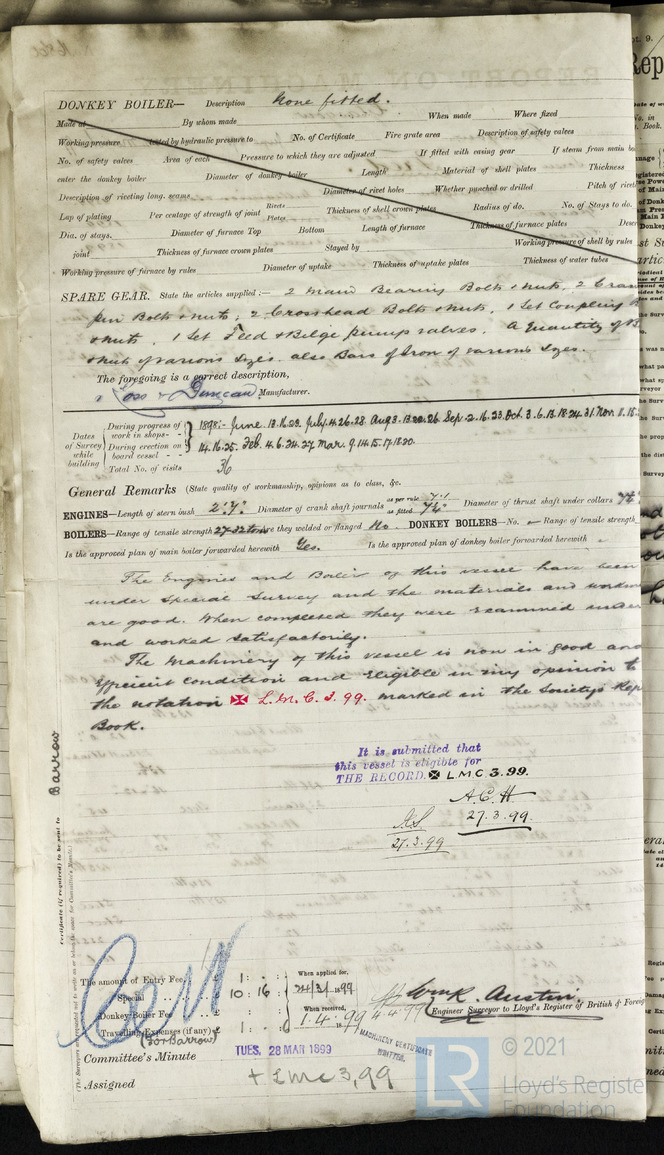 DONKEY BOILER— Description None fitted.
Made at By whom made When made Where fixed
Working pressure tested by hydraulic pressure to No. of Certificate Fire grate area Description of safety valves
No. of safety valves Area of each Pressure to which they are adjusted If fitted with easing gear If steam from main
enter the donkey boiler Diameter of donkey boiler Length Material of shell plates Thickness
Description of riveting long. seams Diameter of rivet holes Whether punched or drilled Pitch of
Lap of plating Per centage of strength of joint Rivets Plates Thickness of shell crown plates Radius of do. No. of Stays to do.
Dia. of stays. Diameter of furnace Top Bottom Length of furnace Thickness of furnace plates
joint Thickness of furnace crown plates Stayed by Working pressure of shell by rules
Working pressure of furnace by rules Diameter of uptake Thickness of uptake plates Thickness of water tubes
SPARE GEAR. State the articles supplied:— 2 Main Bearing Bolts & Nuts, 2
pin Bolts & nuts; 2 Crosshead Bolts & Nuts, 1 Set Coupling
& nuts, 1 Set Feed & Bilge pump valves. A Quantity of
& Nuts of various Sizes. also Bars of Iron of various Sizes.
The foregoing is a correct description,
Ross & Duncan. Manufacturer.
Dates of Survey while building
During progress of work in shops- - 1898:- June 13.16.23. July 4.26.28. Aug 3. 26. Sep 2.16.23. Oct 3.6.13.18.24.31. Nov
During erection on board vessel - - 14.16.25. Feb. 4.6.24.27. Mar. 9.14.15.17.18.20.
Total No. of visits 36
General Remarks (State quality of workmanship, opinions as to class, &c.
ENGINES—Length of stern bush 2'.7" Diameter of crank shaft journals as per rule 7.1 as fitted 7½" Diameter of thrust shaft under collars
BOILERS—Range of tensile strength 27-32 tons Are they welded or flanged No. DONKEY BOILERS—No. Range of tensile strength
Is the approved plan of main boiler forwarded herewith Yes. Is the approved plan of donkey boiler forwarded herewith
The Engines and Boiler of this vessel have been
under Special Survey and the materials and
are good. When completed they were examined under
and worked satisfactorily.
The Machinery of this vessel is now in good and
efficient condition and eligible in my opinion
the notation ✠ L.M.C. 3.99. marked in the Society's
Book.
It is submitted that
this vessel is eligible for
THE RECORD. ✠ L.M.C. 3.99.
A.C.H
27.3.99.
A.S.
27.3.99
Barrow
Certificate (if required) to be sent to
The amount of Entry Fee £ 1 : :
Special £ 10 : 16 :
Donkey Boiler Fee £ : :
Travelling Expenses (if any) £ 1 : :
(For Barrow)
When applied for,
24/3/1899
When received,
1.4.1899
4.4.99
Wm R. Austin.
Engineer Surveyor to Lloyd's Register of British & Foreign
MACHINERY CERTIFICATE
WRITTEN.
Committee's Minute TUES. 28 MAR 1899
Assigned + LMC 3,99
LR
© 2021
Lloyd's Registe
Foundation